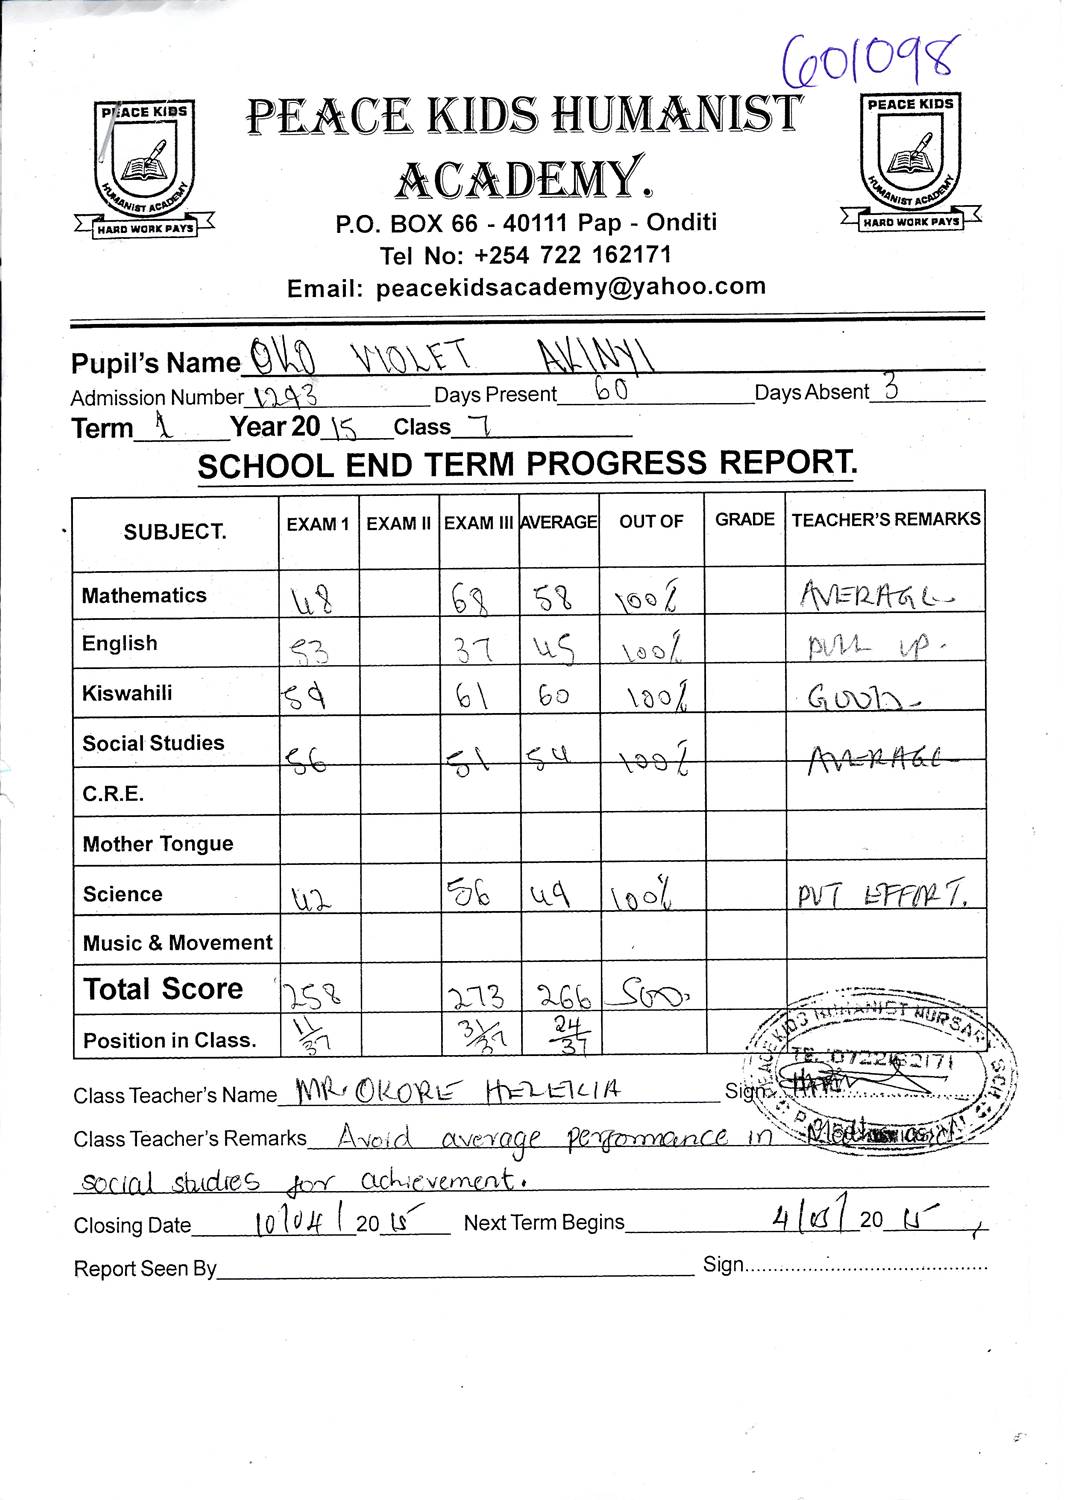 601098
PEACE KIDS HUMANIST ACADEMY HARD WORK PAYS
PEACE KIDS HUMANIST
ACADEMY.
PEACE KIDS HUMANIST ACADEMY HARD WORK PAYS
P.O. BOX 66 - 40111 Pap - Onditi
Tel No: +254 722 162171
Email: peacekidsacademy@yahoo.com
Pupil's Name OKO VIOLET AKINYI
Admission Number 1293 Days Present 60 Days Absent 3
Term 1 Year 20 15 Class 7
SCHOOL END TERM PROGRESS REPORT.
SUBJECT. EXAM 1 EXAM II EXAM III AVERAGE OUT OF GRADE TEACHER'S REMARKS
Mathematics 48 68 58 100% AVERAGE
English 53 37 45 100% PULL UP.
Kiswahili 59 61 60 100% GOOD.
Social Studies 56 51 54 100% AVERAGE
C.R.E.
Mother Tongue
Science 42 56 49 100% PUT EFFORT.
Music & Movement
Total Score 258 273 266 500.
Position in Class. 11/37 31/37 24/37
PEACE KIDS HUMANIST NURSARY SCH
TEL 0722162171
Class Teacher's Name MR. OKORE Sign
Class Teacher's Remarks Avoid average performance in
social studies for achievement.
Closing Date 10/04/ 20 15 Next Term Begins 4/05/ 20 15
Report Seen By Sign